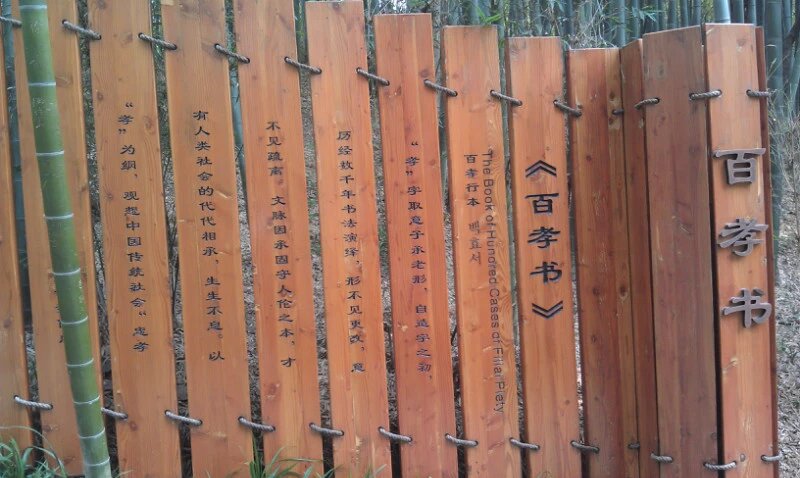 百孝书
《百孝书》
The Book of Hundred Cases of Filial Piety
百孝行本 백효서
“孝”字取意子承老形，自造字之初，
历经数千年书法演绎，形不见更改，意
不见疏离。文脉因承固守人伦之本，才
有人类社会的代代相承，生生不息。以
“孝”为纲，观想中国传统社会“忠孝